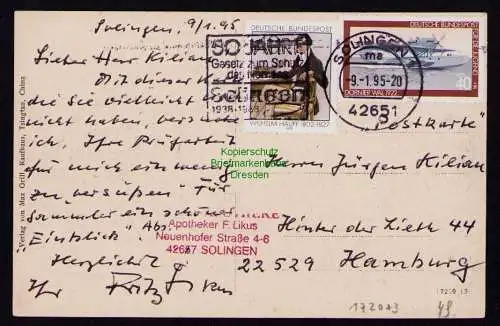 Solingen, 9/1.95
Lieber Herr Kilian
Mit dieser
die Sie vielleicht
nicht haben,
Ihre Prüfarbeit
für mich ein wenig
zu „versüßen" Für
Sammler ein schöner
„Einblick". Abs.
Herzlichst
Ihr Fritz
Verlag von Max Grill, Kaufhaus, Tsingtau, China
50 JAHRE
Gesetz zum Schutz
des Namens
Solingen
1938-1988
DEUTSCHE BUNDESPOST
WILHELM HAUFF 1802-1827
DEUTSCHE BUNDESPOST
FÜR DIE JUGEND
40
DORNIER WAL 1922
SOLINGEN 1
ma
-9.-1.95-20
42651
„Postkarte"
Herrn Jürgen Kilian
Hinter der Lieth 44
22529 Hamburg
APOTHEKE
Apotheker F. Likus
Neuenhofer Straße 4-6
42657 SOLINGEN
Kopierschutz
Briefmarkenbude
Dresden